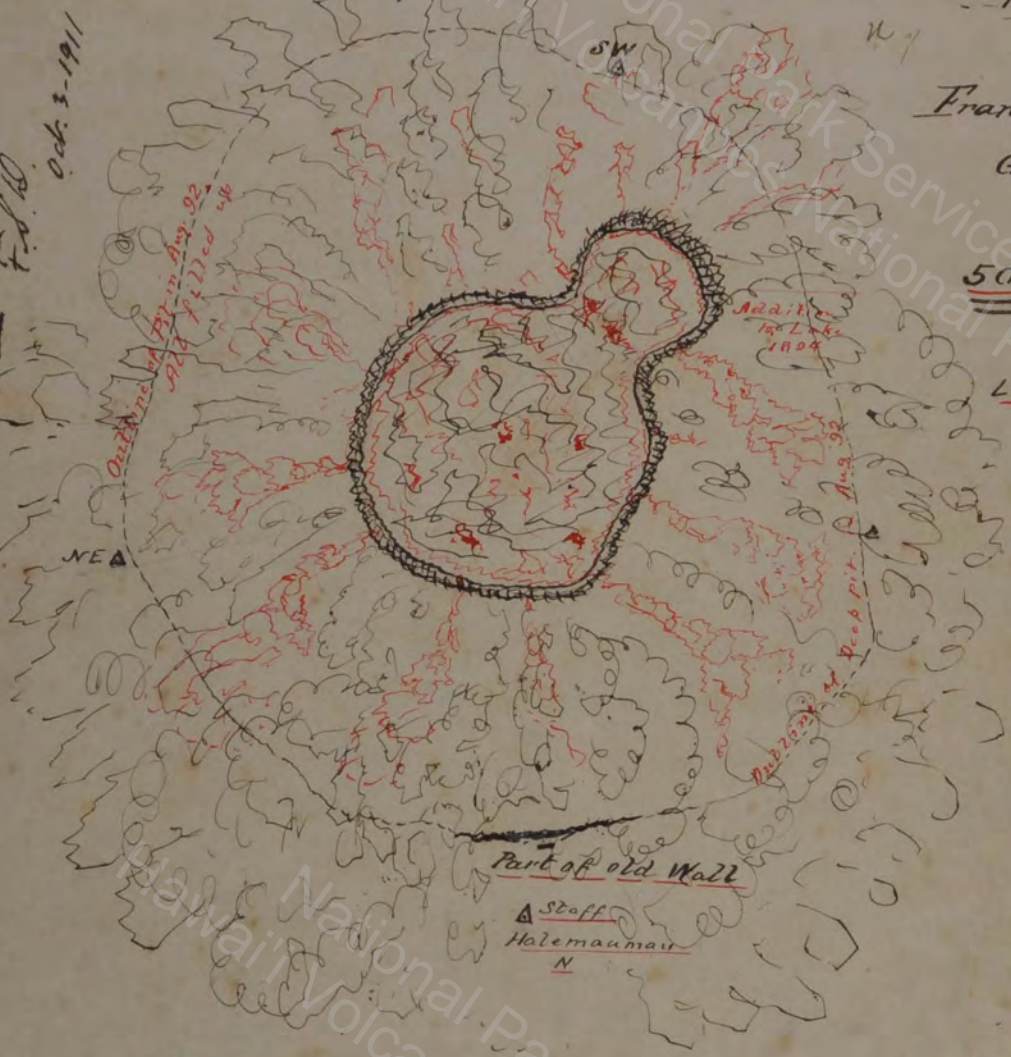 Oct. 3-1911
SW
Fran
G
5 (
L
Outline of Pit in Aug. 92.
All filled up
Addition
to Lake
1894
NE
Outline of Deep pit in Aug 92
Part of old Wall
Staff
Halemaumau
N
National Park Service
Hawai'i Volcanoes National P
National Pa
Hawai'i Volca